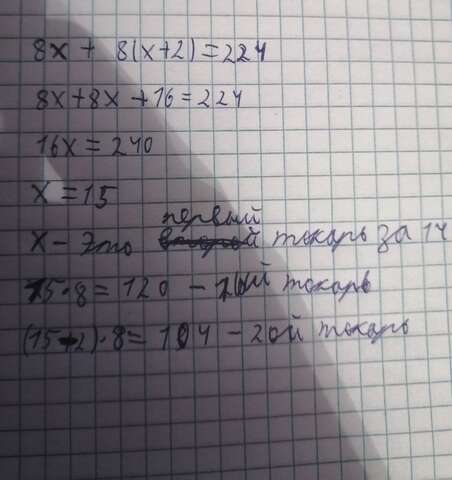 8x + 8(x+2)=224
8x+8x+16=224
16x=240
x=15
x - это первый токарь за 1ч
15·8=120 - 1ый токарь
(15-2)·8=104 - 2ой токарь